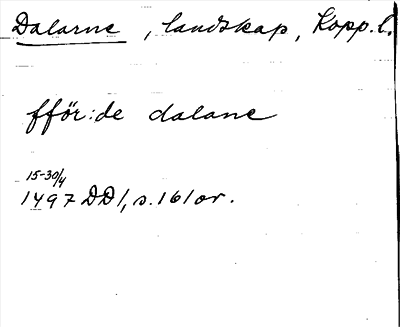 Dalarne, landskap, Kopp.l.
fför:de dalane
15-30/4
1497 DD1, s.161 or.